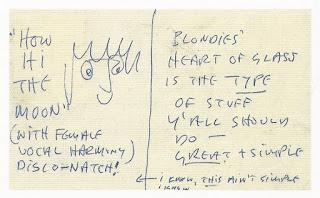 "HOW
HI
THE
MOON"
(WITH FEMALE
VOCAL HARMONY)
DISCO-NATCH!
BLONDIES'
HEART OF GLASS
IS THE TYPE
OF STUFF
Y'ALL SHOULD
DO —
GREAT + SIMPLE
← I KNOW, THIS AIN'T SIMPLE
I KNOW